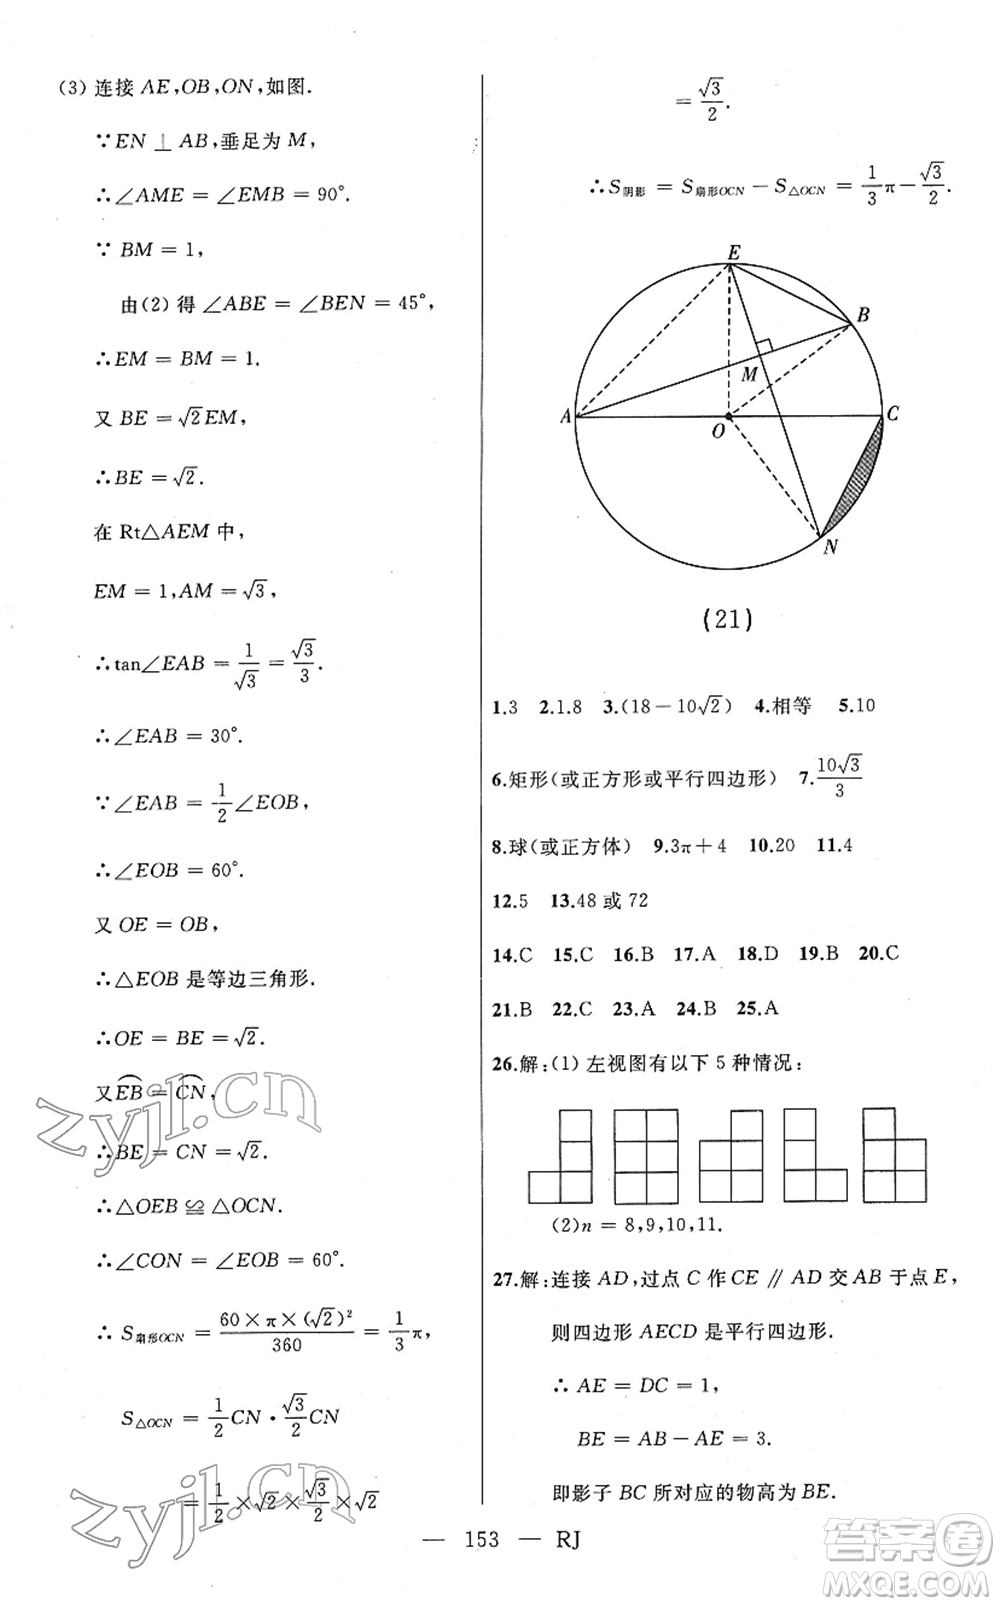 (3)连接 AE,OB,ON,如图.
∵EN⊥AB,垂足为 M,
∴∠AME=∠EMB=90°.
∵ BM=1,
由(2)得∠ABE=∠BEN=45°,
∴EM=BM=1.
又 BE=√2EM,
∴BE=√2.
在 Rt△AEM 中,
EM=1,AM=√3,
∴tan∠EAB=1/√3=√3/3.
∴∠EAB=30°.
∵∠EAB=1/2∠EOB,
∴∠EOB=60°.
又 OE=OB,
∴△EOB 是等边三角形.
∴OE=BE=√2.
又EB⌒=CN⌒,
∴BE=CN=√2.
∴△OEB≌△OCN.
∴∠CON=∠EOB=60°.
∴S扇形OCN=60×π×(√2)²/360=1/3π,
S△OCN=1/2CN·√3/2CN
=1/2×√2×√3/2×√2
=√3/2.
∴S阴影=S扇形OCN-S△OCN=1/3π-√3/2.
E
B
M
A
O
C
N
(21)
1.3 2.1.8 3.(18-10√2) 4.相等 5.10
6.矩形(或正方形或平行四边形) 7.10√3/3
8.球(或正方体) 9.3π+4 10.20 11.4
12.5 13.48 或 72
14.C 15.C 16.B 17.A 18.D 19.B 20.C
21.B 22.C 23.A 24.B 25.A
26.解:(1)左视图有以下 5 种情况:
(2)n=8,9,10,11.
27.解:连接 AD,过点 C 作 CE∥AD 交 AB 于点 E,
则四边形 AECD 是平行四边形.
∴ AE=DC=1,
BE=AB-AE=3.
即影子 BC 所对应的物高为 BE.
— 153 — RJ
zyjl.cn
zyjl.cn
答案圈
MXQE.COM